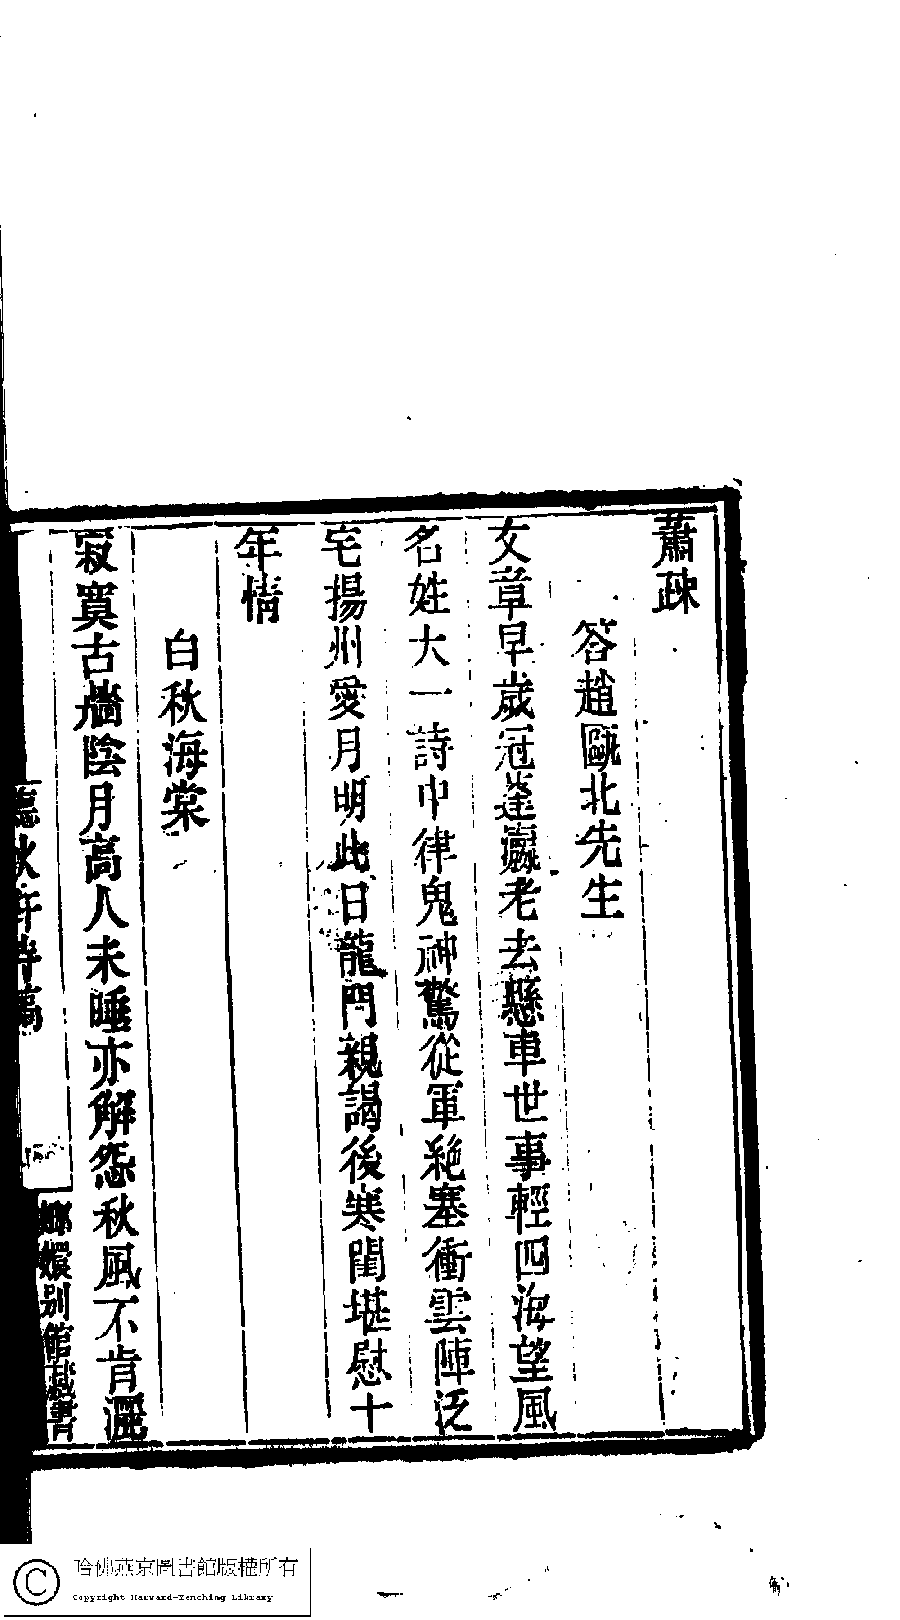 蕭疎
答趙甌北先生
文章早歲冠蓬瀛老去懸車世事輕四海望風
名姓大一詩中律鬼神驚從軍絶塞衝雲陣泛
宅揚州愛月明此日龍門親謁後寒閨堪慰十
年情
白秋海棠
寂寞古牆陰月高人未睡亦解怨秋風不肯灑
聽秋軒詩稿
嫏嬛別館藏書
哈佛燕京圖書館版權所有
Copyright Harvard-Yenching Library